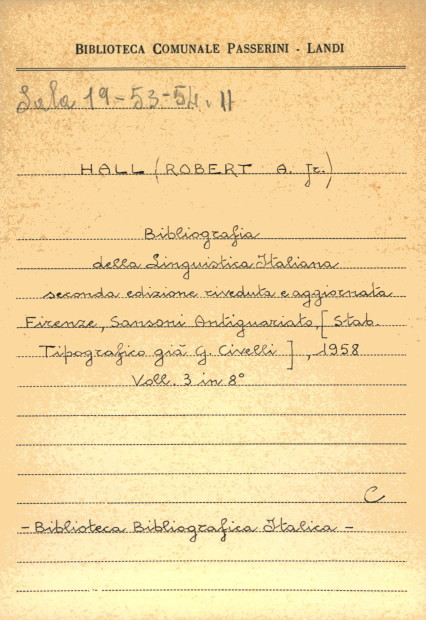 BIBLIOTECA COMUNALE PASSERINI - LANDI
Sala 19-53-54. II
HALL (ROBERT A. Jr.)
Bibliografia
della Linguistica Italiana
seconda edizione riveduta e aggiornata
Firenze, Sansoni Antiquariato, [Stab.
Tipografico già G. Civelli], 1958
Voll. 3 in 8°
C
- Biblioteca Bibliografica Italica -